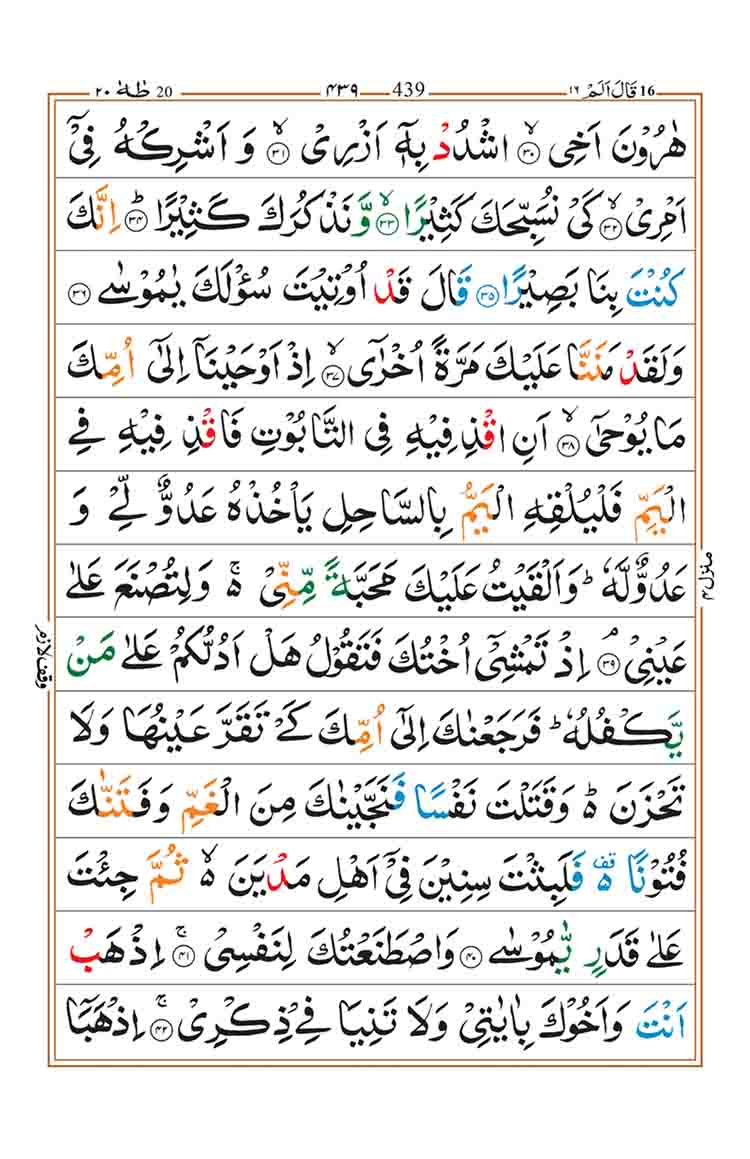 16 قَالَ اَلَمْ ١٦ 439 ۴۳۹ 20 طٰهٰ ۲۰
هٰرُوْنَ اَخِی ۙ﴿۳۰﴾ اشْدُدْ بِهٖۤ اَزْرِیْ ۙ﴿۳۱﴾ وَ اَشْرِكْهُ فِیْۤ
اَمْرِیْ ۙ﴿۳۲﴾ كَیْ نُسَبِّحَكَ كَثِیْرًا ۙ﴿۳۳﴾ وَّ نَذْكُرَكَ كَثِیْرًا ؕ﴿۳۴﴾ اِنَّكَ
كُنْتَ بِنَا بَصِیْرًا ﴿۳۵﴾ قَالَ قَدْ اُوْتِیْتَ سُؤْلَكَ یٰمُوْسٰی ﴿۳۶﴾
وَلَقَدْ مَنَنَّا عَلَیْكَ مَرَّةً اُخْرٰۤی ۙ﴿۳۷﴾ اِذْ اَوْحَیْنَاۤ اِلٰۤی اُمِّكَ
مَا یُوْحٰۤی ۙ﴿۳۸﴾ اَنِ اقْذِفِیْهِ فِی التَّابُوْتِ فَاقْذِ فِیْهِ فِی
الْیَمِّ فَلْیُلْقِهِ الْیَمُّ بِالسَّاحِلِ یَاْخُذْهُ عَدُوٌّ لِّیْ وَ
عَدُوٌّ لَّهٗ ؕ وَاَلْقَیْتُ عَلَیْكَ مَحَبَّةً مِّنِّیْ ۚ۬ وَلِتُصْنَعَ عَلٰی
عَیْنِیْ ۘ﴿۳۹﴾ اِذْ تَمْشِیْۤ اُخْتُكَ فَتَقُوْلُ هَلْ اَدُلُّكُمْ عَلٰی مَنْ
یَّكْفُلُهٗ ؕ فَرَجَعْنٰكَ اِلٰۤی اُمِّكَ كَیْ تَقَرَّ عَیْنُهَا وَلَا
تَحْزَنَ ۬ؕ وَقَتَلْتَ نَفْسًا فَنَجَّیْنٰكَ مِنَ الْغَمِّ وَفَتَنّٰكَ
فُتُوْنًا ۬۫ فَلَبِثْتَ سِنِیْنَ فِیْۤ اَهْلِ مَدْیَنَ ۬ۙ ثُمَّ جِئْتَ
عَلٰی قَدَرٍ یّٰمُوْسٰی ﴿۴۰﴾ وَاصْطَنَعْتُكَ لِنَفْسِیْ ۚ﴿۴۱﴾ اِذْهَبْ
اَنْتَ وَاَخُوْكَ بِاٰیٰتِیْ وَلَا تَنِیَا فِیْ ذِكْرِیْ ۚ﴿۴۲﴾ اِذْهَبَاۤ
منزل ۴
وقف لازم